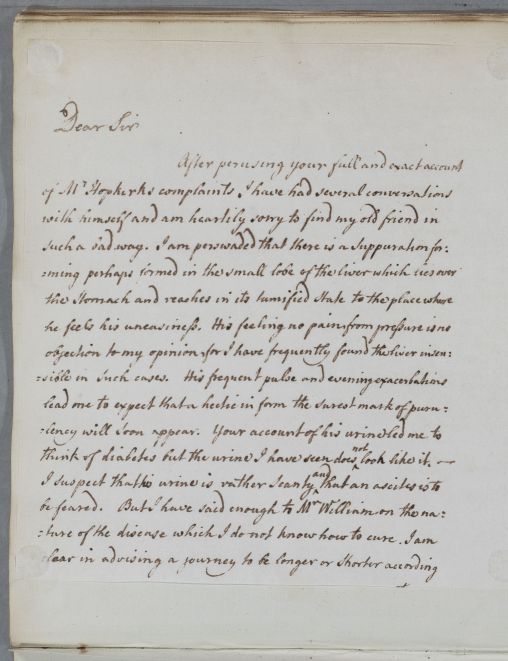 Dear Sir
After perusing your full and exact account
of Mr Hopkirks complaints, I have had several conversations
with himself and am heartily sorry to find my old friend in
such a sad way. I am perswaded that there is a suppuration for:
:ming perhaps formed in the small lobe of the liver which lies over
the Stomach and reaches in its tumified state to the place where
he feels his uneasiness. His feeling no pain from pressure is no
objection to my opinion for I have frequently found the liver insen:
:sible in such cases. His frequent pulse and evening exacerbations
lead me to expect that a hectic in form the surest mark of puru:
:lency will soon appear. Your account of his urine led me to
think of diabetes but the urine I have seen does not look like it. —
I suspect that his urine is rather scanty and that an ascites is to
be feared. But I have said enough to Mr William on the na:
:ture of the disease which I do not know how to cure. I am
clear in advising a journey to be longer or shorter according